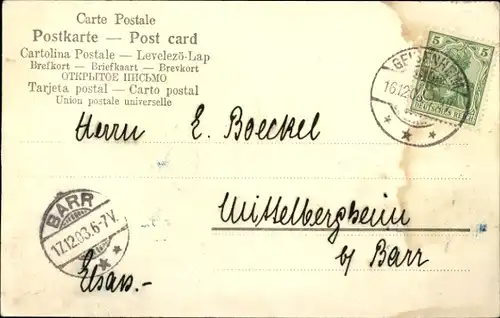 Carte Postale
Postkarte — Post card
Cartolina Postale — Levelező-Lap
Brefkort — Briefkaart — Brevkort
ОТКРЫТОЕ ПИСЬМО
Tarjeta postal — Carto postal
Union postale universelle
5 5
DEUTSCHES REICH
16.12.03
Herrn E. Boeckel
Mittelbergheim
b/ Barr
BARR
17.12.03.6-7V.
Elsass.-